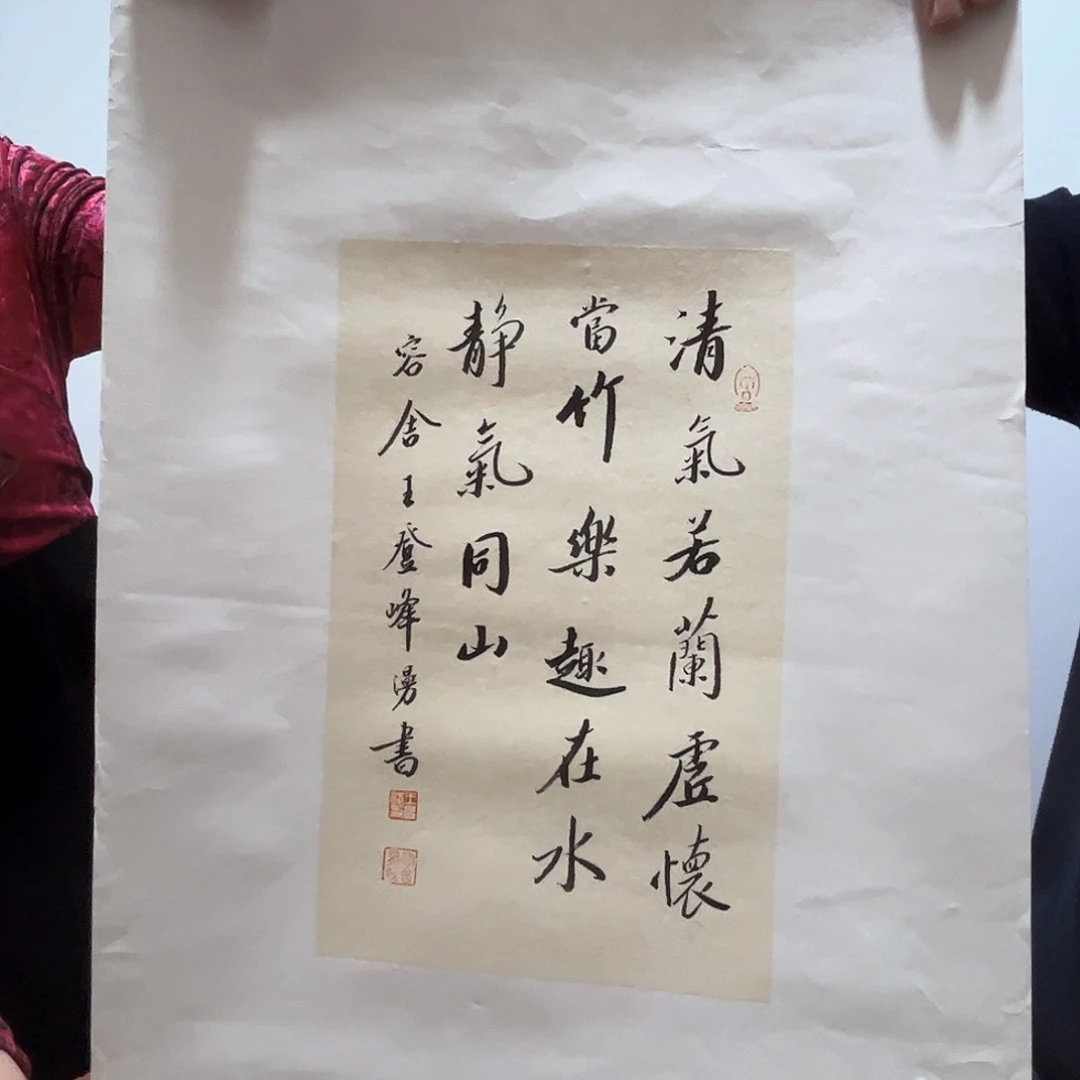 清氣若蘭虛懷
當竹樂趣在水
静氣同山
容舍王登峰
書